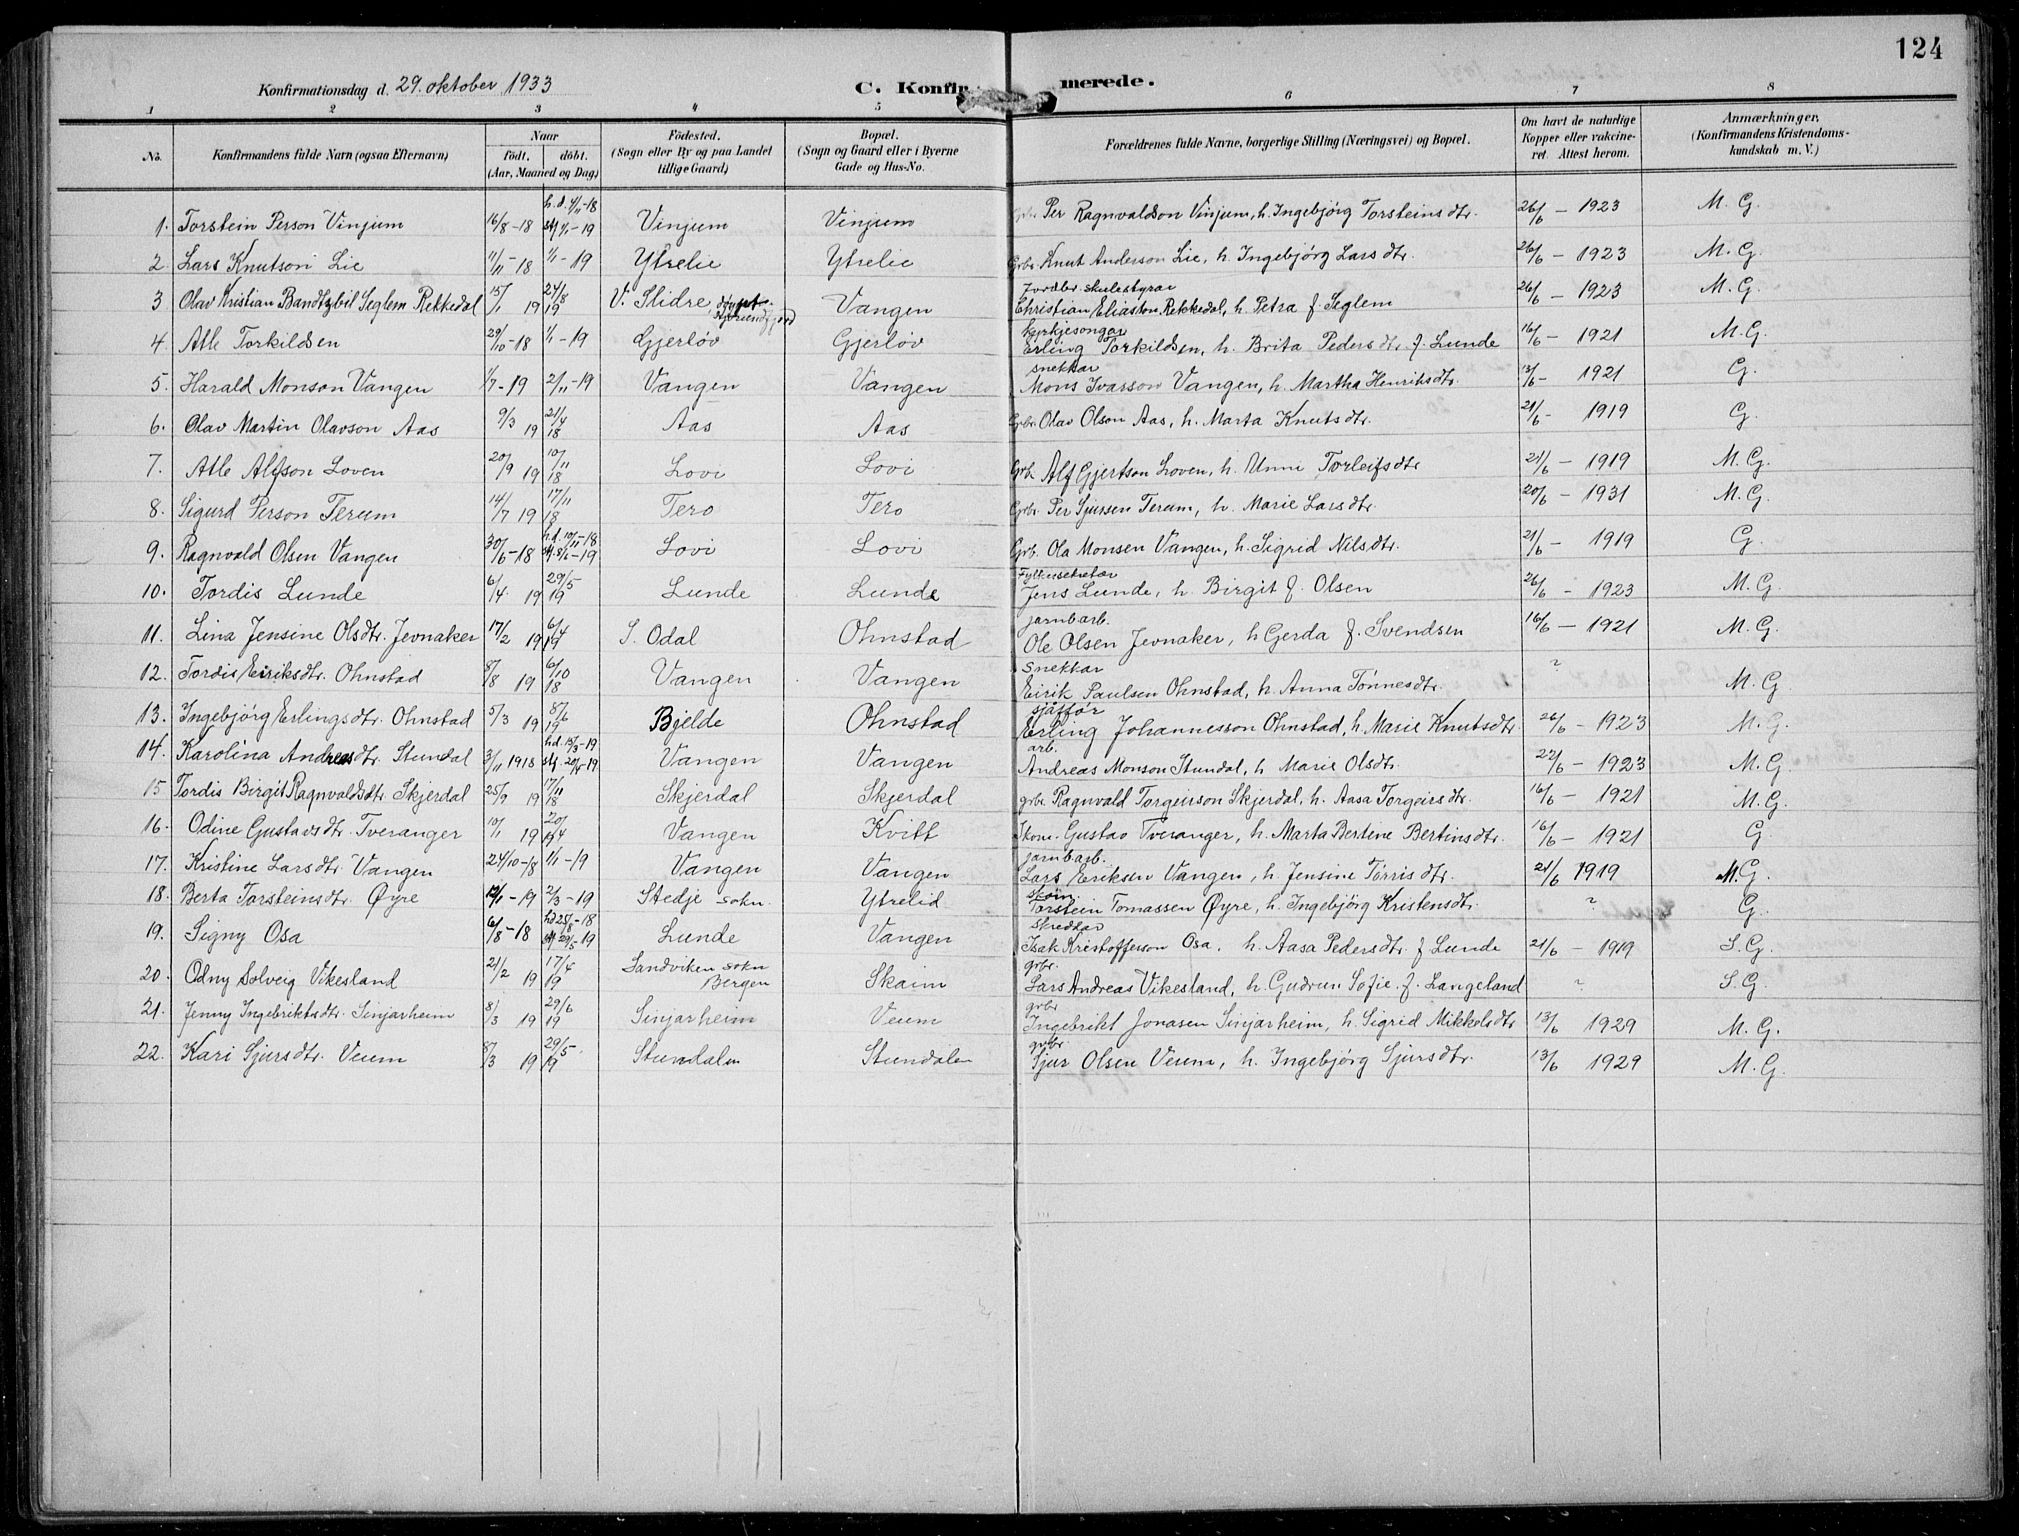 124
Konfirmationsdag d. 29. oktober 1933
C. Konfir merede.
1 2 3 4 5 6 7 8
No. Konfirmandens fulde Navn (ogsaa Efternavn) Naar födt. döbt. (Aar, Maaned og Dag) Födested. (Sogn eller By og paa Landet tillige Gaard) Bopæl. (Sogn og Gaard eller i Byerne Gade og Hus-No. Forældrenes fulde Navne, borgerlige Stilling (Næringsvei) og Bopæl. Om havt de naturlige Kopper eller vakcineret. Attest herom. Anmærkninger, (Konfirmandens Kristendomskundskab m. V.)
1. Torstein Person Vinjum 16/8-18 h.d. 4/11-18 stf 1/1-19 Vinjum Vinjum Grbr. Per Ragnvaldson Vinjum, h. Ingebjörg Torsteinsdtr. 26/6 - 1923 M. G.
2. Lars Knutson Lie 11/11-18 1/1-19 Ytrelie Ytrelie Grbr. Knut Anderson Lie, h. Ingebjörg Larsdtr. 26/6 - 1923 M. G.
3 Olav Kristian Bandtzbil Seglem Rekkedal 15/1 19 24/8 19 V. Slidre, Vangen Jordbr. skulestyrar Christian Eliasson Rekkedal, h. Petra f. Seglem 26/6 - 1923 M. G.
4. Atle Torkildsen 29/10-18 1/1-19 Gjerlöv Gjerlöv kyrkjesongar Erling Torkildsen, h. Brita Pedersdtr. f. Lunde 16/6 - 1921 M. G.
5. Harald Monson Vangen 1/7-19 2/11-19 Vangen Vangen snekkar Mons Ivarson Vangen, h. Martha Henriksdtr. 13/6 - 1921 G.
6. Olav Martin Olavson Aas 9/3 19 21/4 18 Aas Aas Grbr. Olav Olson Aas, h. Marta Knutsdtr. 21/6 - 1919 G
7. Atle Alfson Loven 20/9 19 10/11 18 Lovi Lovi Grb. Alf Gjertson Loven, h. Unni Torleifsdtr 21/6 - 1919 M. G.
8. Sigurd Person Terum 14/7 19 17/11 18 Tero Tero Grbr. Per Sjursen Terum, h. Marie Larsdtr. 20/6 - 1931 M. G.
9. Ragnvald Olsen Vangen 30/6-18 h.d. 10/11-18 stf 8/6-19 Lovi Lovi Grb. Ola Monsen Vangen, h. Sigrid Nilsdtr. 21/6 - 1919 G.
10. Tordis Lunde 6/4. 19 29/5 19 Lunde Lunde Fylkessekretær Jens Lunde, h. Birgit f. Olsen 26/6 - 1923 M. G.
11. Lina Jensine Olsdtr. Jevnaker 17/2 19 6/4 19 S. Odal Ohnstad jarnbarb. Ole Olsen Jevnaker, h Gerda f. Svendsen 16/6 - 1921 M. G.
12. Tordis Eiriksdtr. Ohnstad 8/8 19 6/10 18 Vangen Vangen Snekkar Eirik Paulsen Ohnstad, h. Anna Tönnesdtr. ? M. G
13. Ingebjörg Erlingsdtr. Ohnstad 5/3 19 8/6 19 Bjelde Ohnstad sjåfför Erling Johannesson Ohnstad, h. Marie Knutsdtr 26/6 - 1923 M. G
14. Karolina Andreasdtr. Stundal 3/11 1918 h.d. 15/3-19 stf. 20/4-19 Vangen Vangen arb. Andreas Monson Stundal, h Marie Olsdtr. 22/6 - 1923 M. G.
15 Tordis Birgit Ragnvaldsdtr. Skjerdal 25/9 19 17/11 18 Skjerdal Skjerdal grbr. Ragnvald Torgeirson Skjerdal, h. Aasa Torgeirsdtr. 16/6 - 1921 M. G.
16. Odine Gustavsdtr. Tveranger 10/1 19 20/4 19 Vangen Kvitt Skom. Gustav Tveranger, h. Marta Bertene Bertinsdtr. 16/6 - 1921 G
17. Kristine Larsdtr. Vangen 24/10-18 1/1-19 Vangen Vangen jarnbarb. Lars Eriksen Vangen, h. Jensine Törrisdtr. 21/6 1919 M. G.
18. Berta Torsteinsdtr. Øyre 12/1-19 2/3-19 Stedje sokn. Ytrelid skom. Torstein Tomassen Øyre, h. Ingebjörg Kristensdtr. ? G.
19. Signy Osa 6/8-18 hd 25/8-18 stf 29/5-19 Lunde Vangen skreddar Isak Kristofferson Osa. h. Aasa Pedersdtr f Lunde 21/6 - 1919 S. G.
20. Odny Solveig Vikesland 21/2 19 17/4 19 Sandviken sokn Bergen Skaim grbr. Lars Andreas Vikesland, h. Gudrun Sofie. f. Langeland ? S. G.
21. Jenny Ingebriktsdtr. Sinjarheim 8/3 19 29/6 19 Sinjarheim Veum grbr Ingebrikt Jonasen Sinjarheim, h. Sigrid Mikkelsdtr 13/6 1929 M. G.
22. Kari Sjursdtr. Veum 8/3 19 29/5 19 Stundalen Stundalen grbr Sjur Olsen Veum, h. Ingebjörg Sjursdtr. 13/6 1929 M. G.